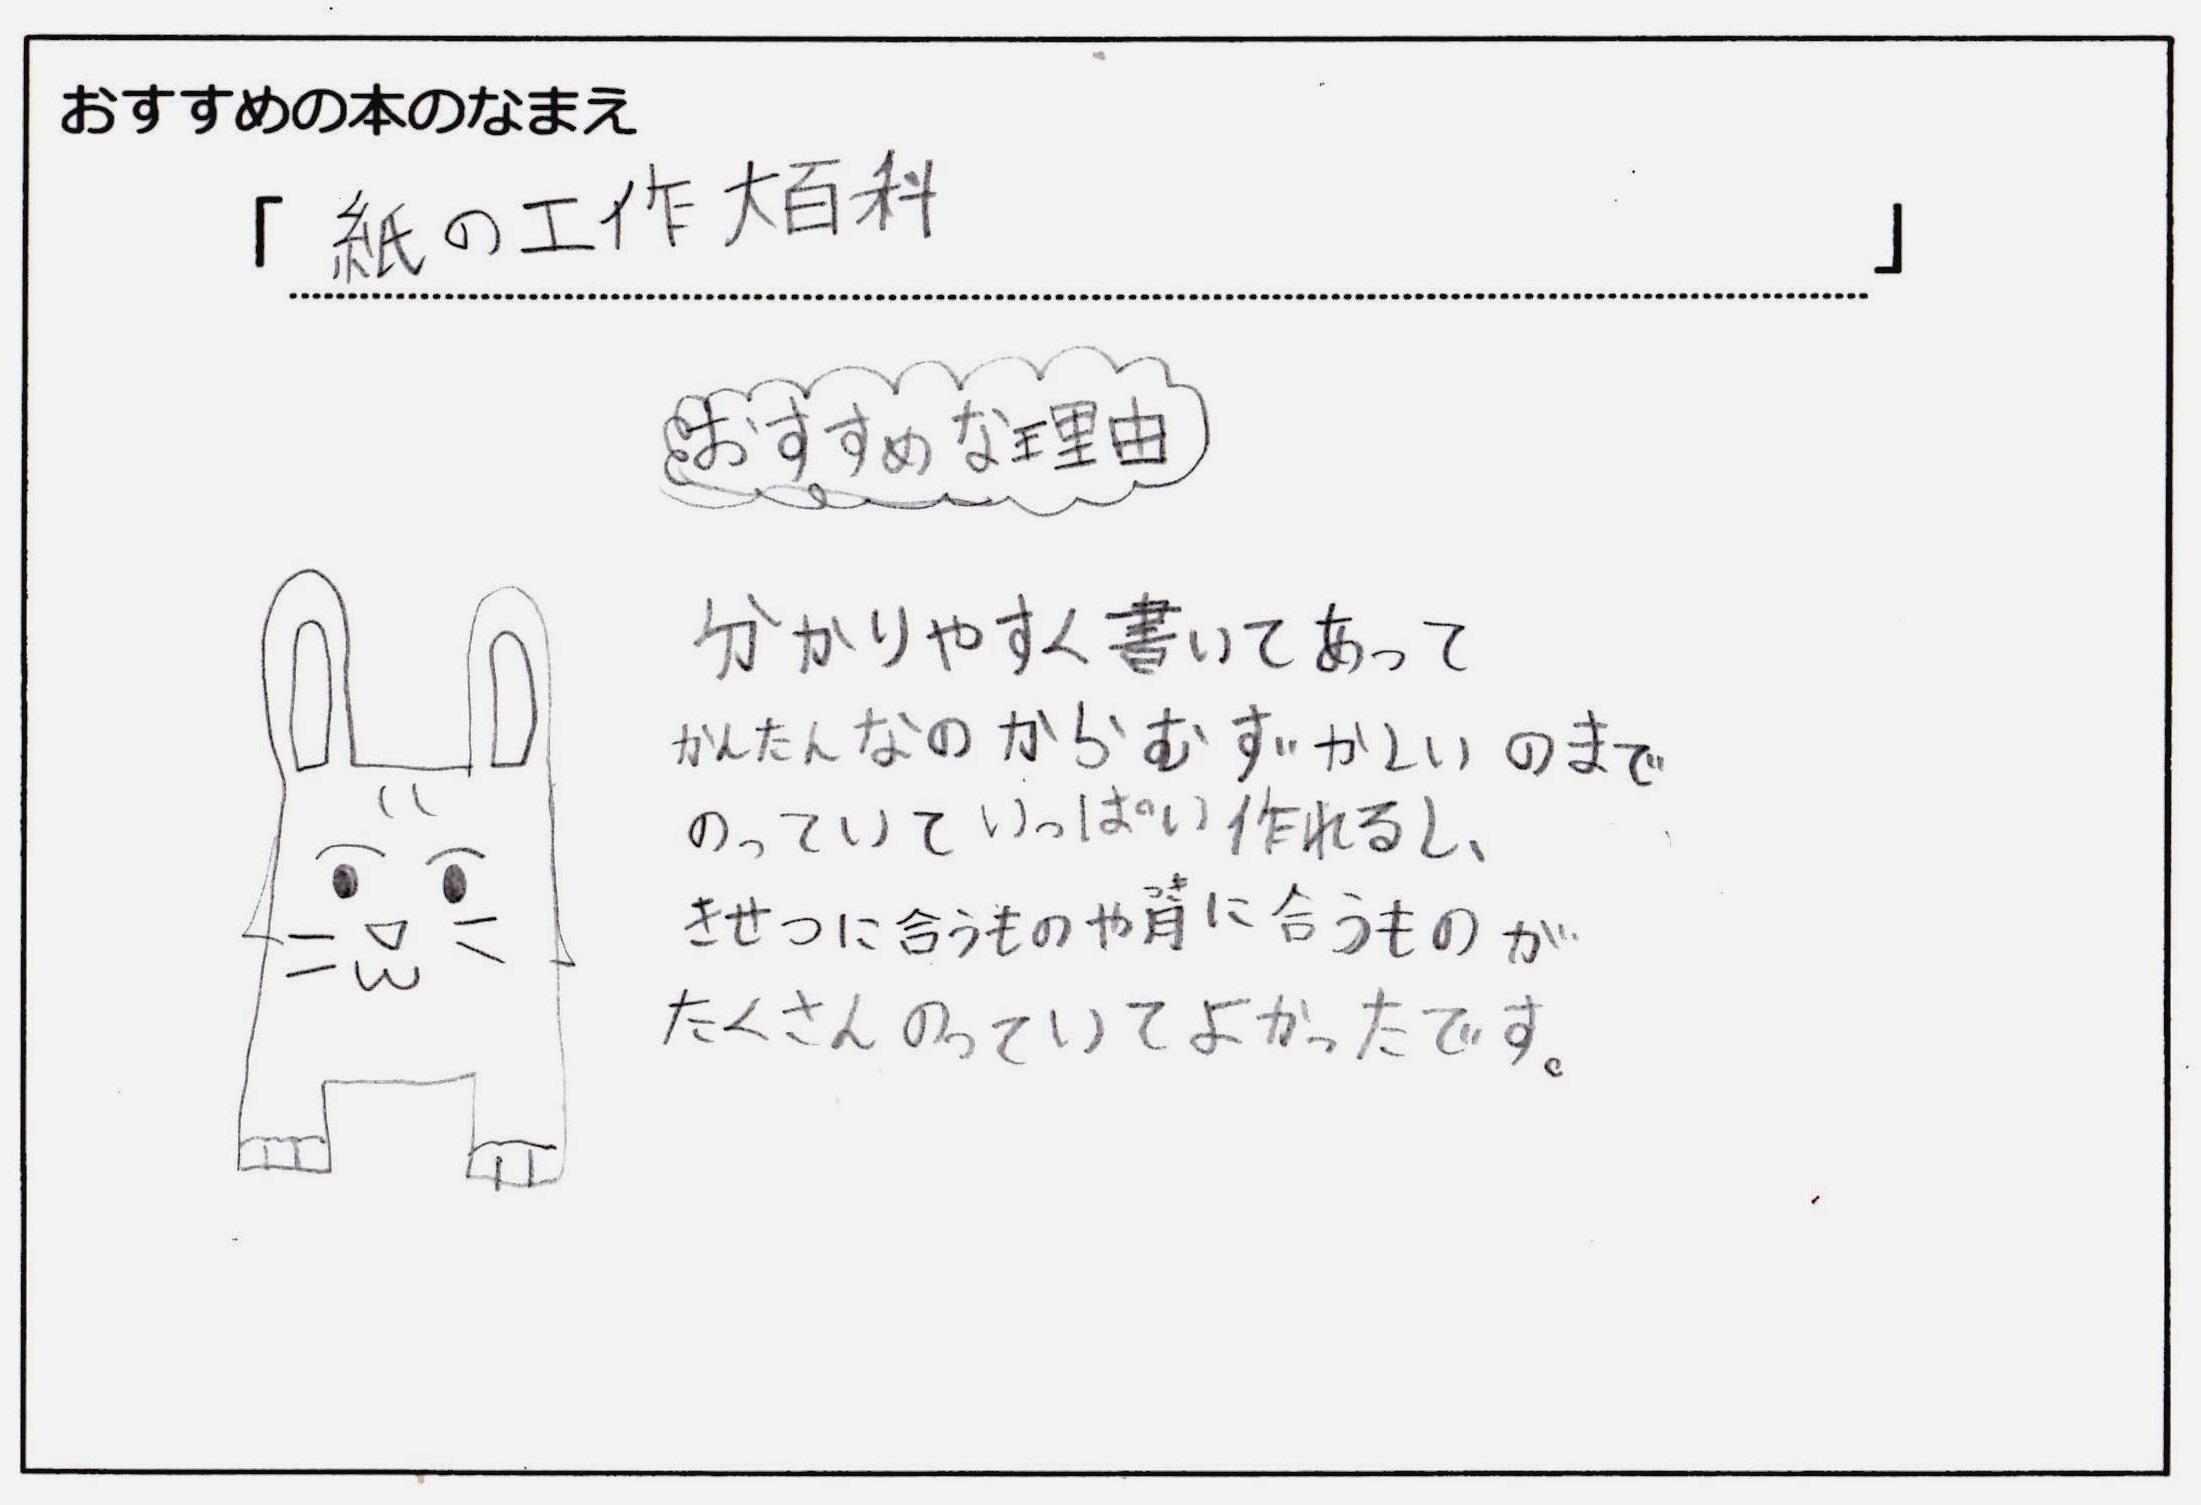 おすすめの本のなまえ
「紙の工作大百科」
おすすめな理由
分かりやすく書いてあって
かんたんなのからむずかしいのまで
のっていていっぱい作れるし、
つき
きせつに合うものや月に合うものが
たくさんのっていてよかったです。